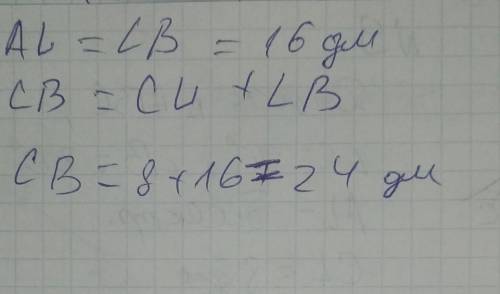 AL = LB = 16 дм
CB = CL + LB
CB = 8 + 16 = 24 дм